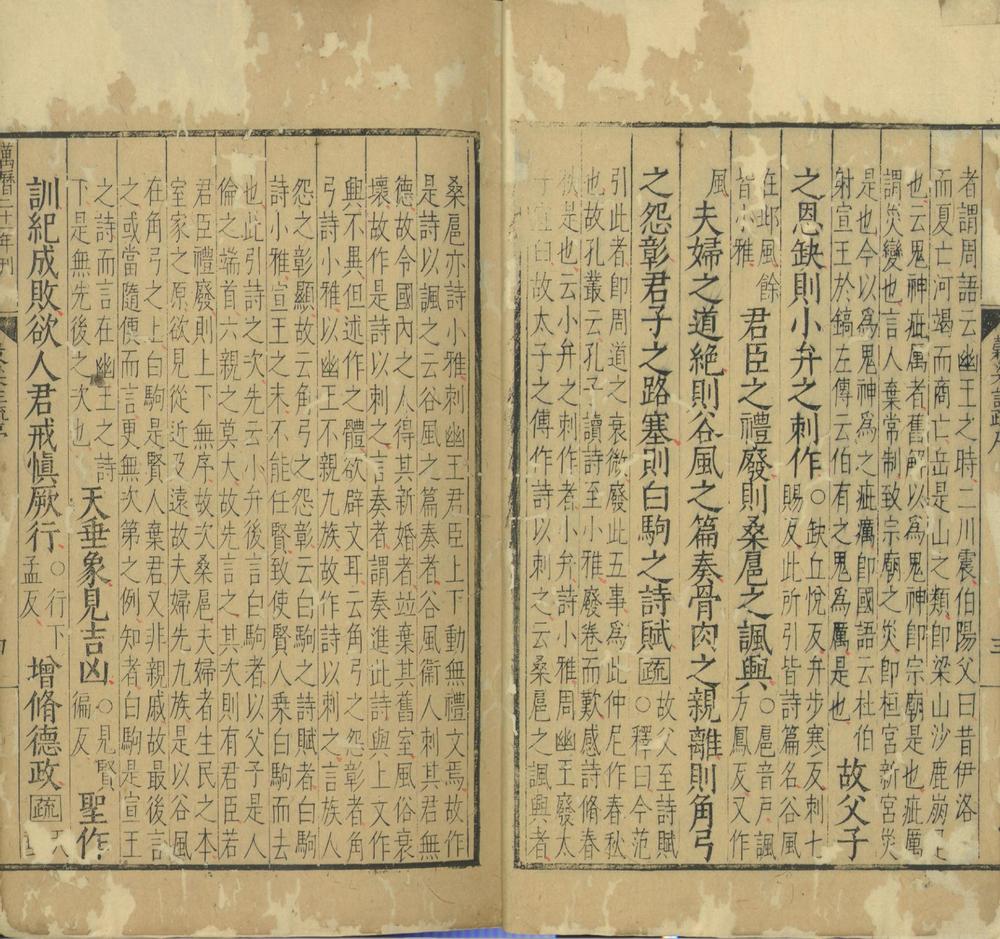 者謂周語云幽王之時二川震伯陽父曰昔伊洛
而夏亡河竭而商亡岳是山之類即梁山沙鹿崩是
也云鬼神疵厲者舊解以為鬼神即宗廟是也疵厲
謂災變也言人棄常制致宗廟之災即桓宮新宮災
是也今以為鬼神為之疵癘即國語云杜伯
射宣王於鎬左傳云伯有之鬼為厲是也 故父子
之恩缺則小弁之刺作○缺丘悅反弁步寒反刺七
賜反此所引皆詩篇名谷風
在邶風餘
皆小雅 君臣之禮廢則桑扈之諷興○扈音戶諷
方鳳反又作
風 夫婦之道絶則谷風之篇奏骨肉之親離則角弓
之怨彰君子之路塞則白駒之詩賦疏故父至詩賦
○釋曰今范
引此者即周道之衰微廢此五事為此仲尼作春秋
也故孔叢云孔子讀詩至小雅廢卷而歎感詩脩春
秋是也云小弁之刺作者小弁詩小雅周幽王廢太
子宜臼故太子之傅作詩以刺之云桑扈之諷興者
桑扈亦詩小雅刺幽王君臣上下動無禮文焉故作
是詩以諷之云谷風之篇奏者谷風衞人刺其君無
德故令國內之人得其新婚者並棄其舊室風俗衰
壞故作是詩以刺之言奏者謂奏進此詩與上文作
興不異但述作之體欲辟文耳云角弓之怨彰者角
弓詩小雅以幽王不親九族故作詩以刺之言族人
怨之彰顯故云角弓之怨彰云白駒之詩賦者白駒
詩小雅宣王之末不能任賢致使賢人乗白駒而去
也此引詩之次先云小弁後言白駒者以父子是人
倫之端首六親之莫大故先言之其次則有君臣若
君臣禮廢則上下無序故次桑扈夫婦者生民之本
室家之原欲見從近及遠故夫婦先九族是以谷風
在角弓之上白駒是賢人棄君又非親戚故最後言
之或當隨便而言更無次第之例知者白駒是宣王
之詩而言在幽王之詩
下是無先後之次也 天垂象見吉凶○見賢
徧反 聖作
訓紀成敗欲人君戒慎厥行○行下
孟反 增脩德政疏
萬曆二十一年刊